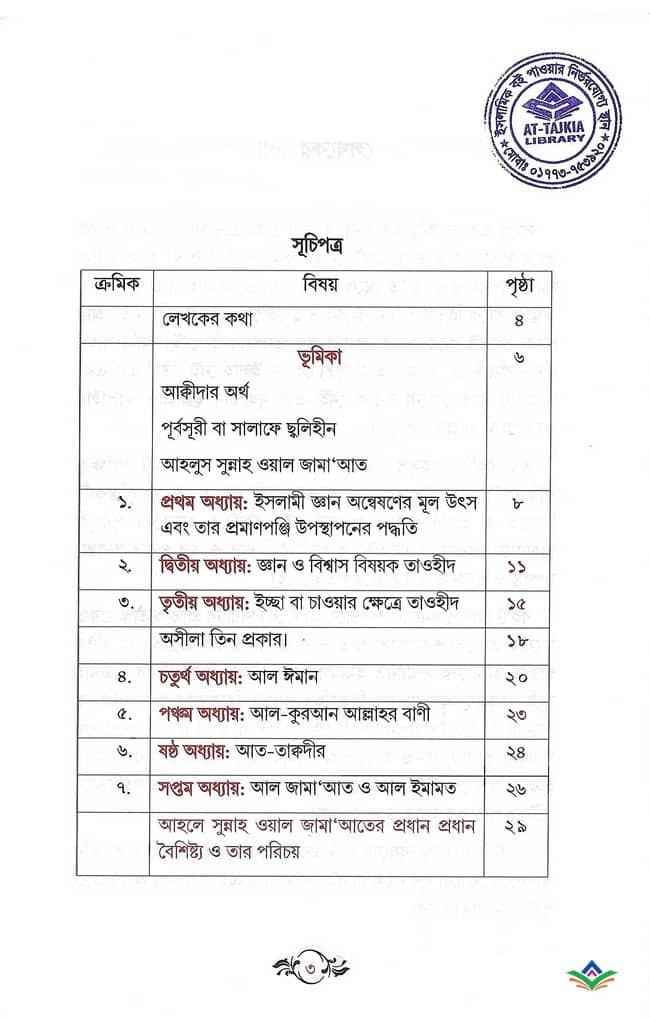 ইসলামিক বই পাওয়ার নির্ভরযোগ্য স্থান
AT-TAJKIA
LIBRARY
মোবাঃ ০১৭৭৩-৭৫৩৯২০
সূচিপত্র
ক্রমিক বিষয় পৃষ্ঠা
লেখকের কথা ৪
ভূমিকা ৬
আক্বীদার অর্থ
পূর্বসূরী বা সালাফে ছ্বলিহীন
আহলুস সুন্নাহ ওয়াল জামা‘আত
১. প্রথম অধ্যায়: ইসলামী জ্ঞান অন্বেষণের মূল উৎস ৮
এবং তার প্রমাণপঞ্জি উপস্থাপনের পদ্ধতি
২. দ্বিতীয় অধ্যায়: জ্ঞান ও বিশ্বাস বিষয়ক তাওহীদ ১১
৩. তৃতীয় অধ্যায়: ইচ্ছা বা চাওয়ার ক্ষেত্রে তাওহীদ ১৫
অসীলা তিন প্রকার। ১৮
৪. চতুর্থ অধ্যায়: আল ঈমান ২০
৫. পঞ্চম অধ্যায়: আল-কুরআন আল্লাহর বাণী ২৩
৬. ষষ্ঠ অধ্যায়: আত-তাক্বদীর ২৪
৭. সপ্তম অধ্যায়: আল জামা‘আত ও আল ইমামত ২৬
আহলে সুন্নাহ ওয়াল জামা‘আতের প্রধান প্রধান ২৯
বৈশিষ্ট্য ও তার পরিচয়
৩